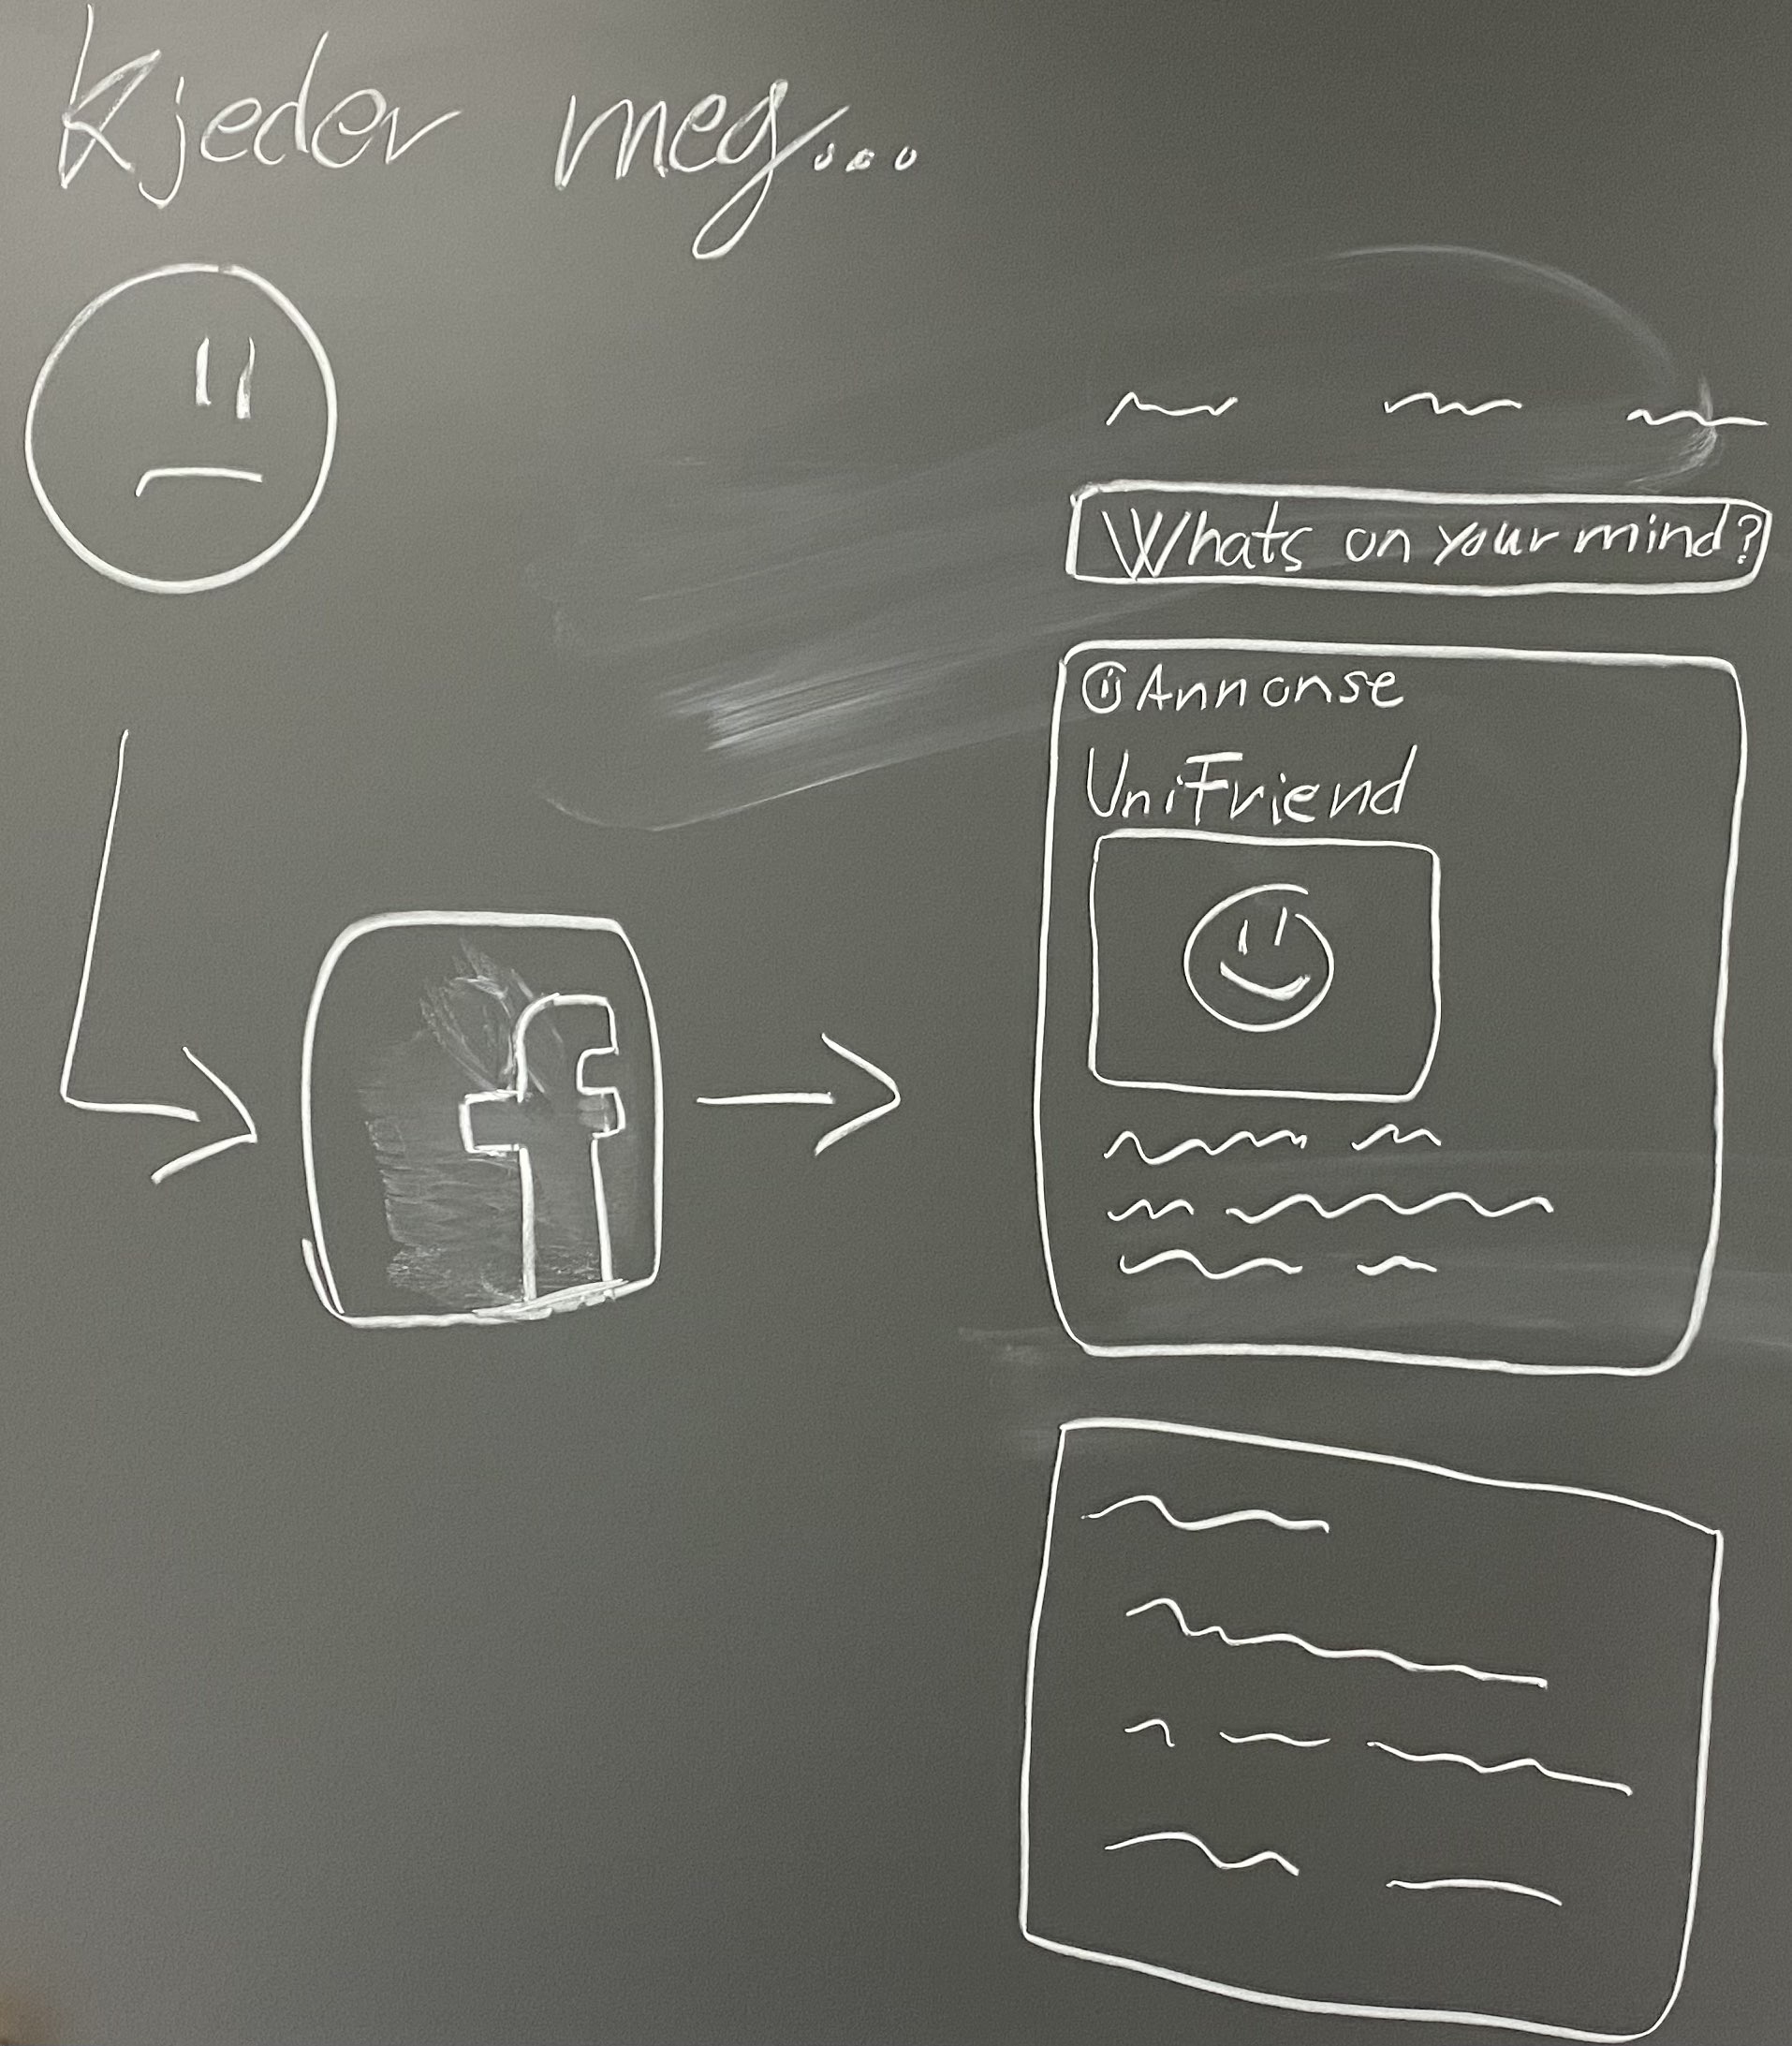 Kjeder meg...
Whats on your mind?
Annonse
UniFriend
f